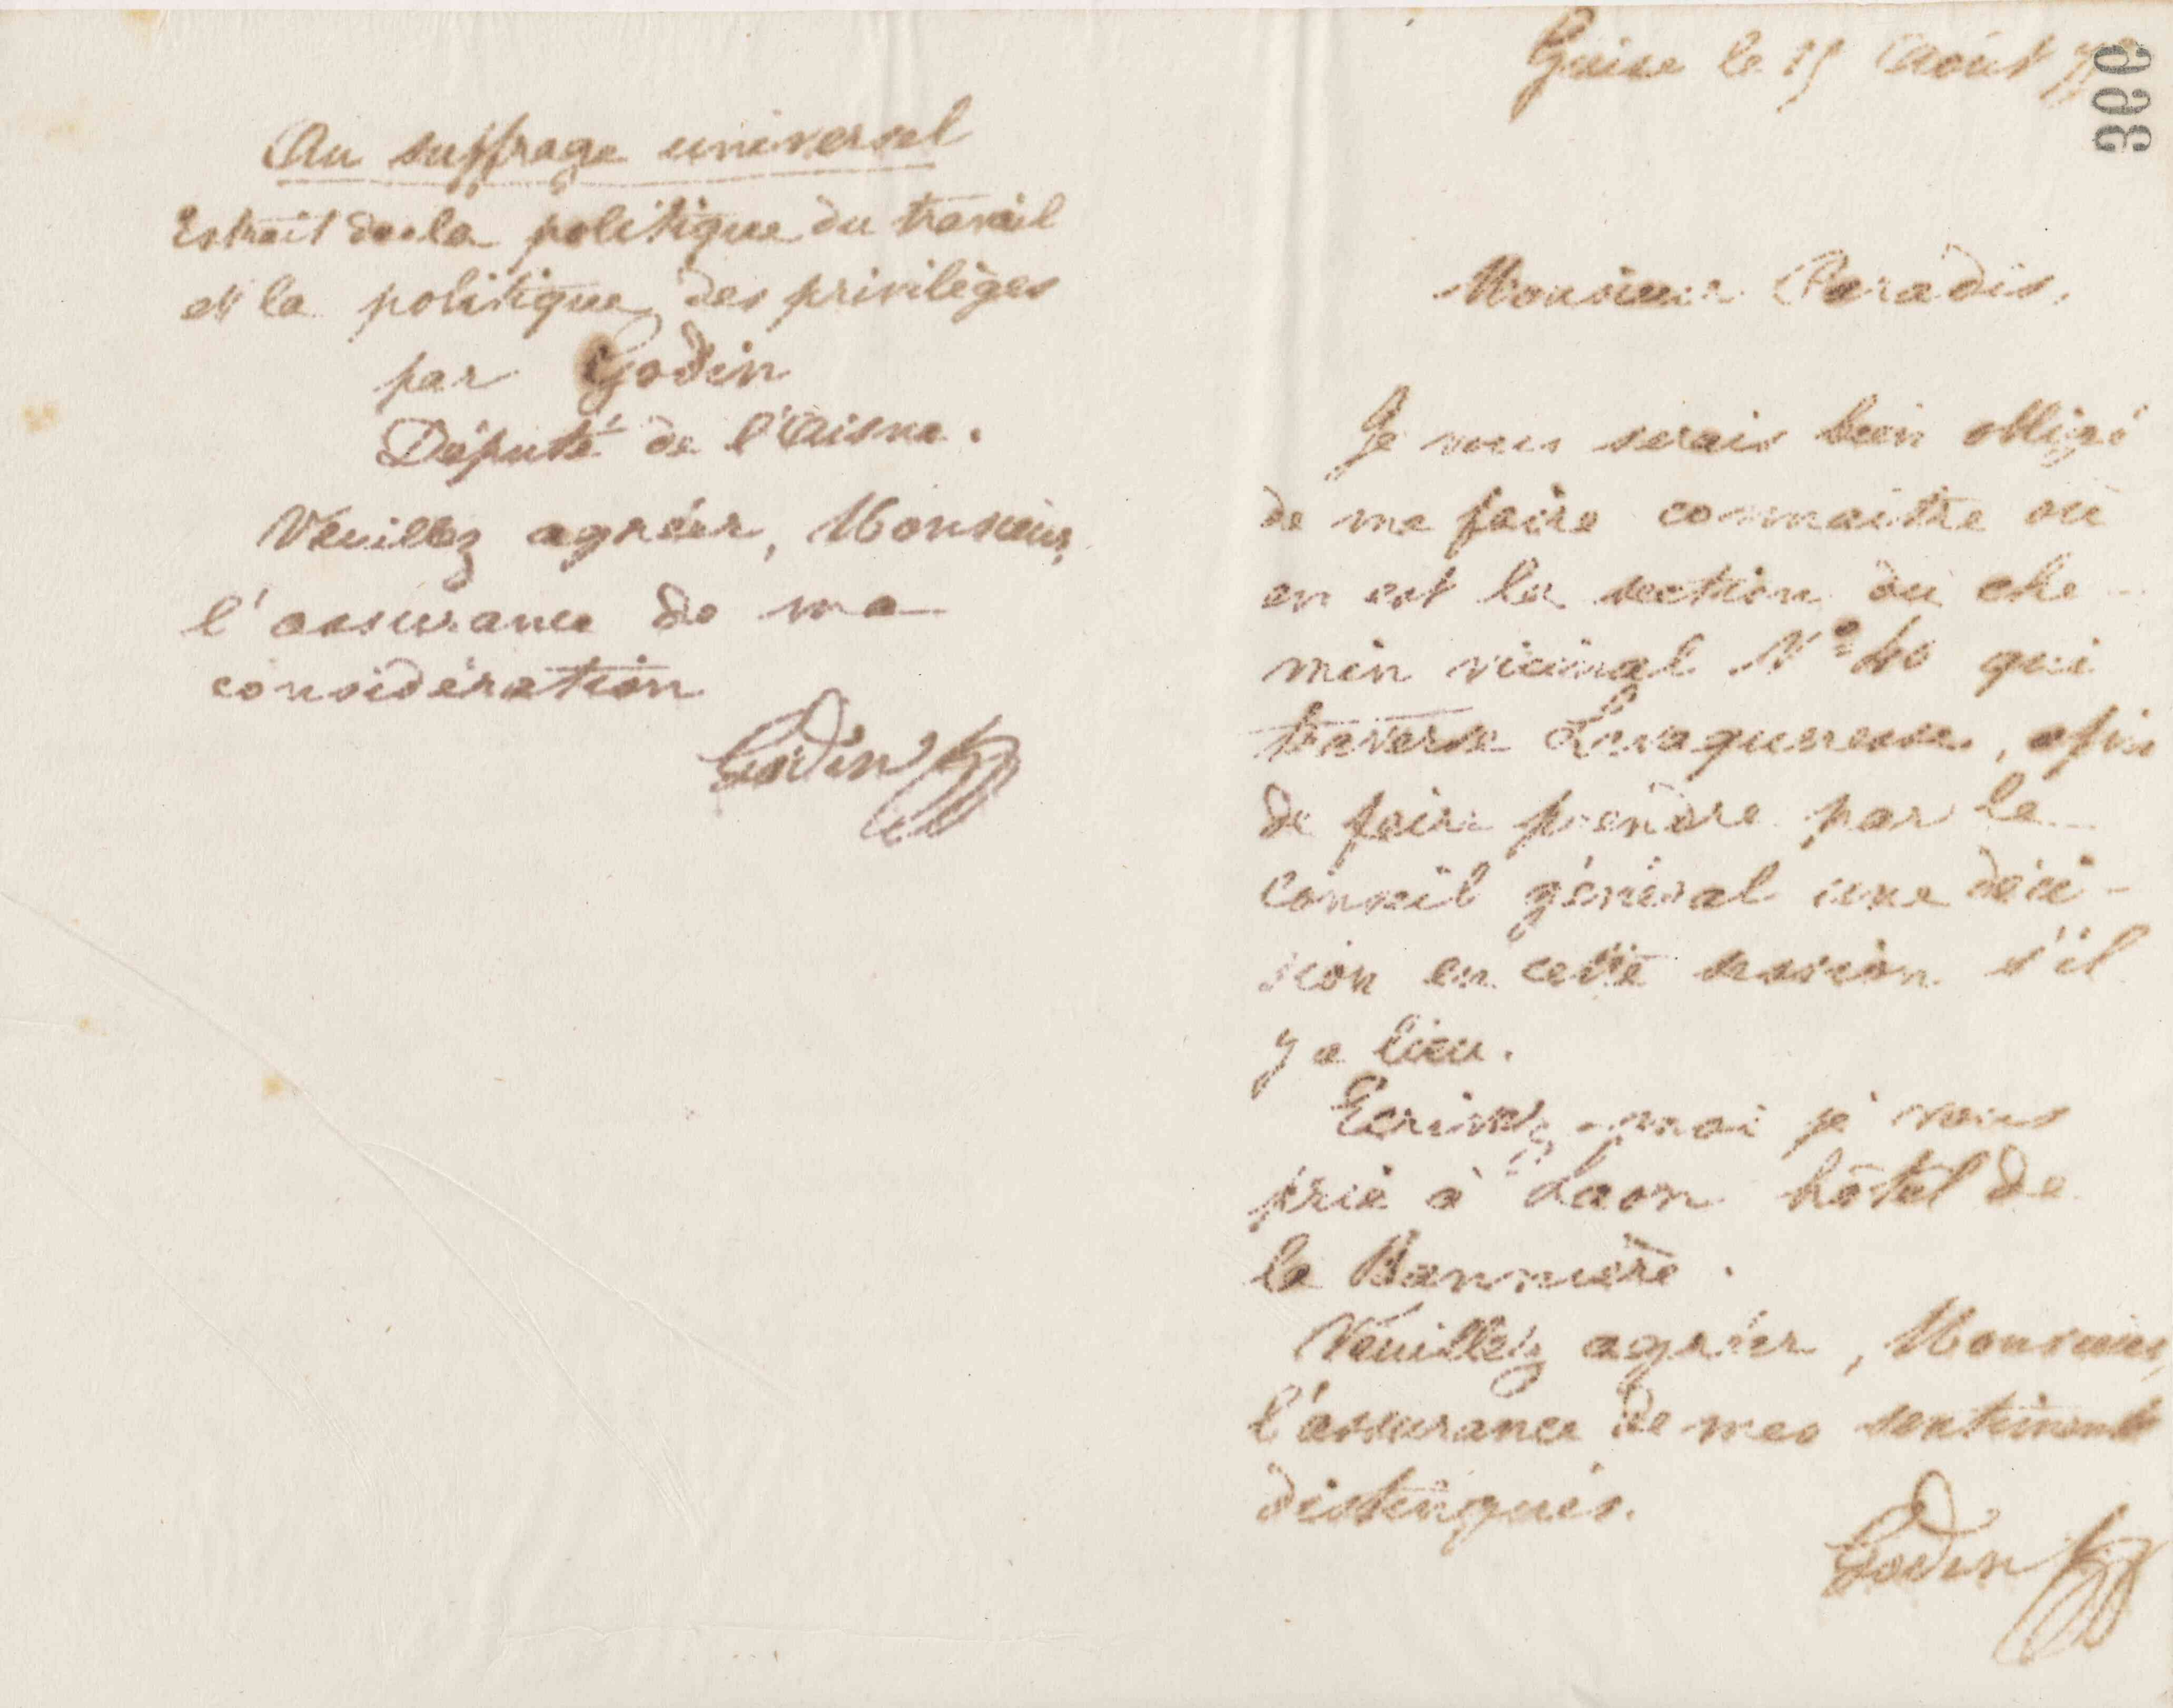 Au suffrage universel
Extrait de la politique du travail
et la politique des privilèges
par Godin
Député de l'Aisne.
Veuillez agréer, Monsieur,
l'assurance de ma
considération
Godin
Guise le 15 Août
399
Monsieur Paradis,
Je vous serais bien obligé
de me faire connaitre où
en est la section du che
min vicinal N° 40 qui
traverse , afin
de faire prendre par le
Conseil général une déci-
sion en cette session s'il
y a lieu.
Ecrivez-moi je vous
prie à Laon hôtel de
la Bannière.
Veuillez agréer, Monsieur,
l'assurance de mes sentiments
distingués.
Godin